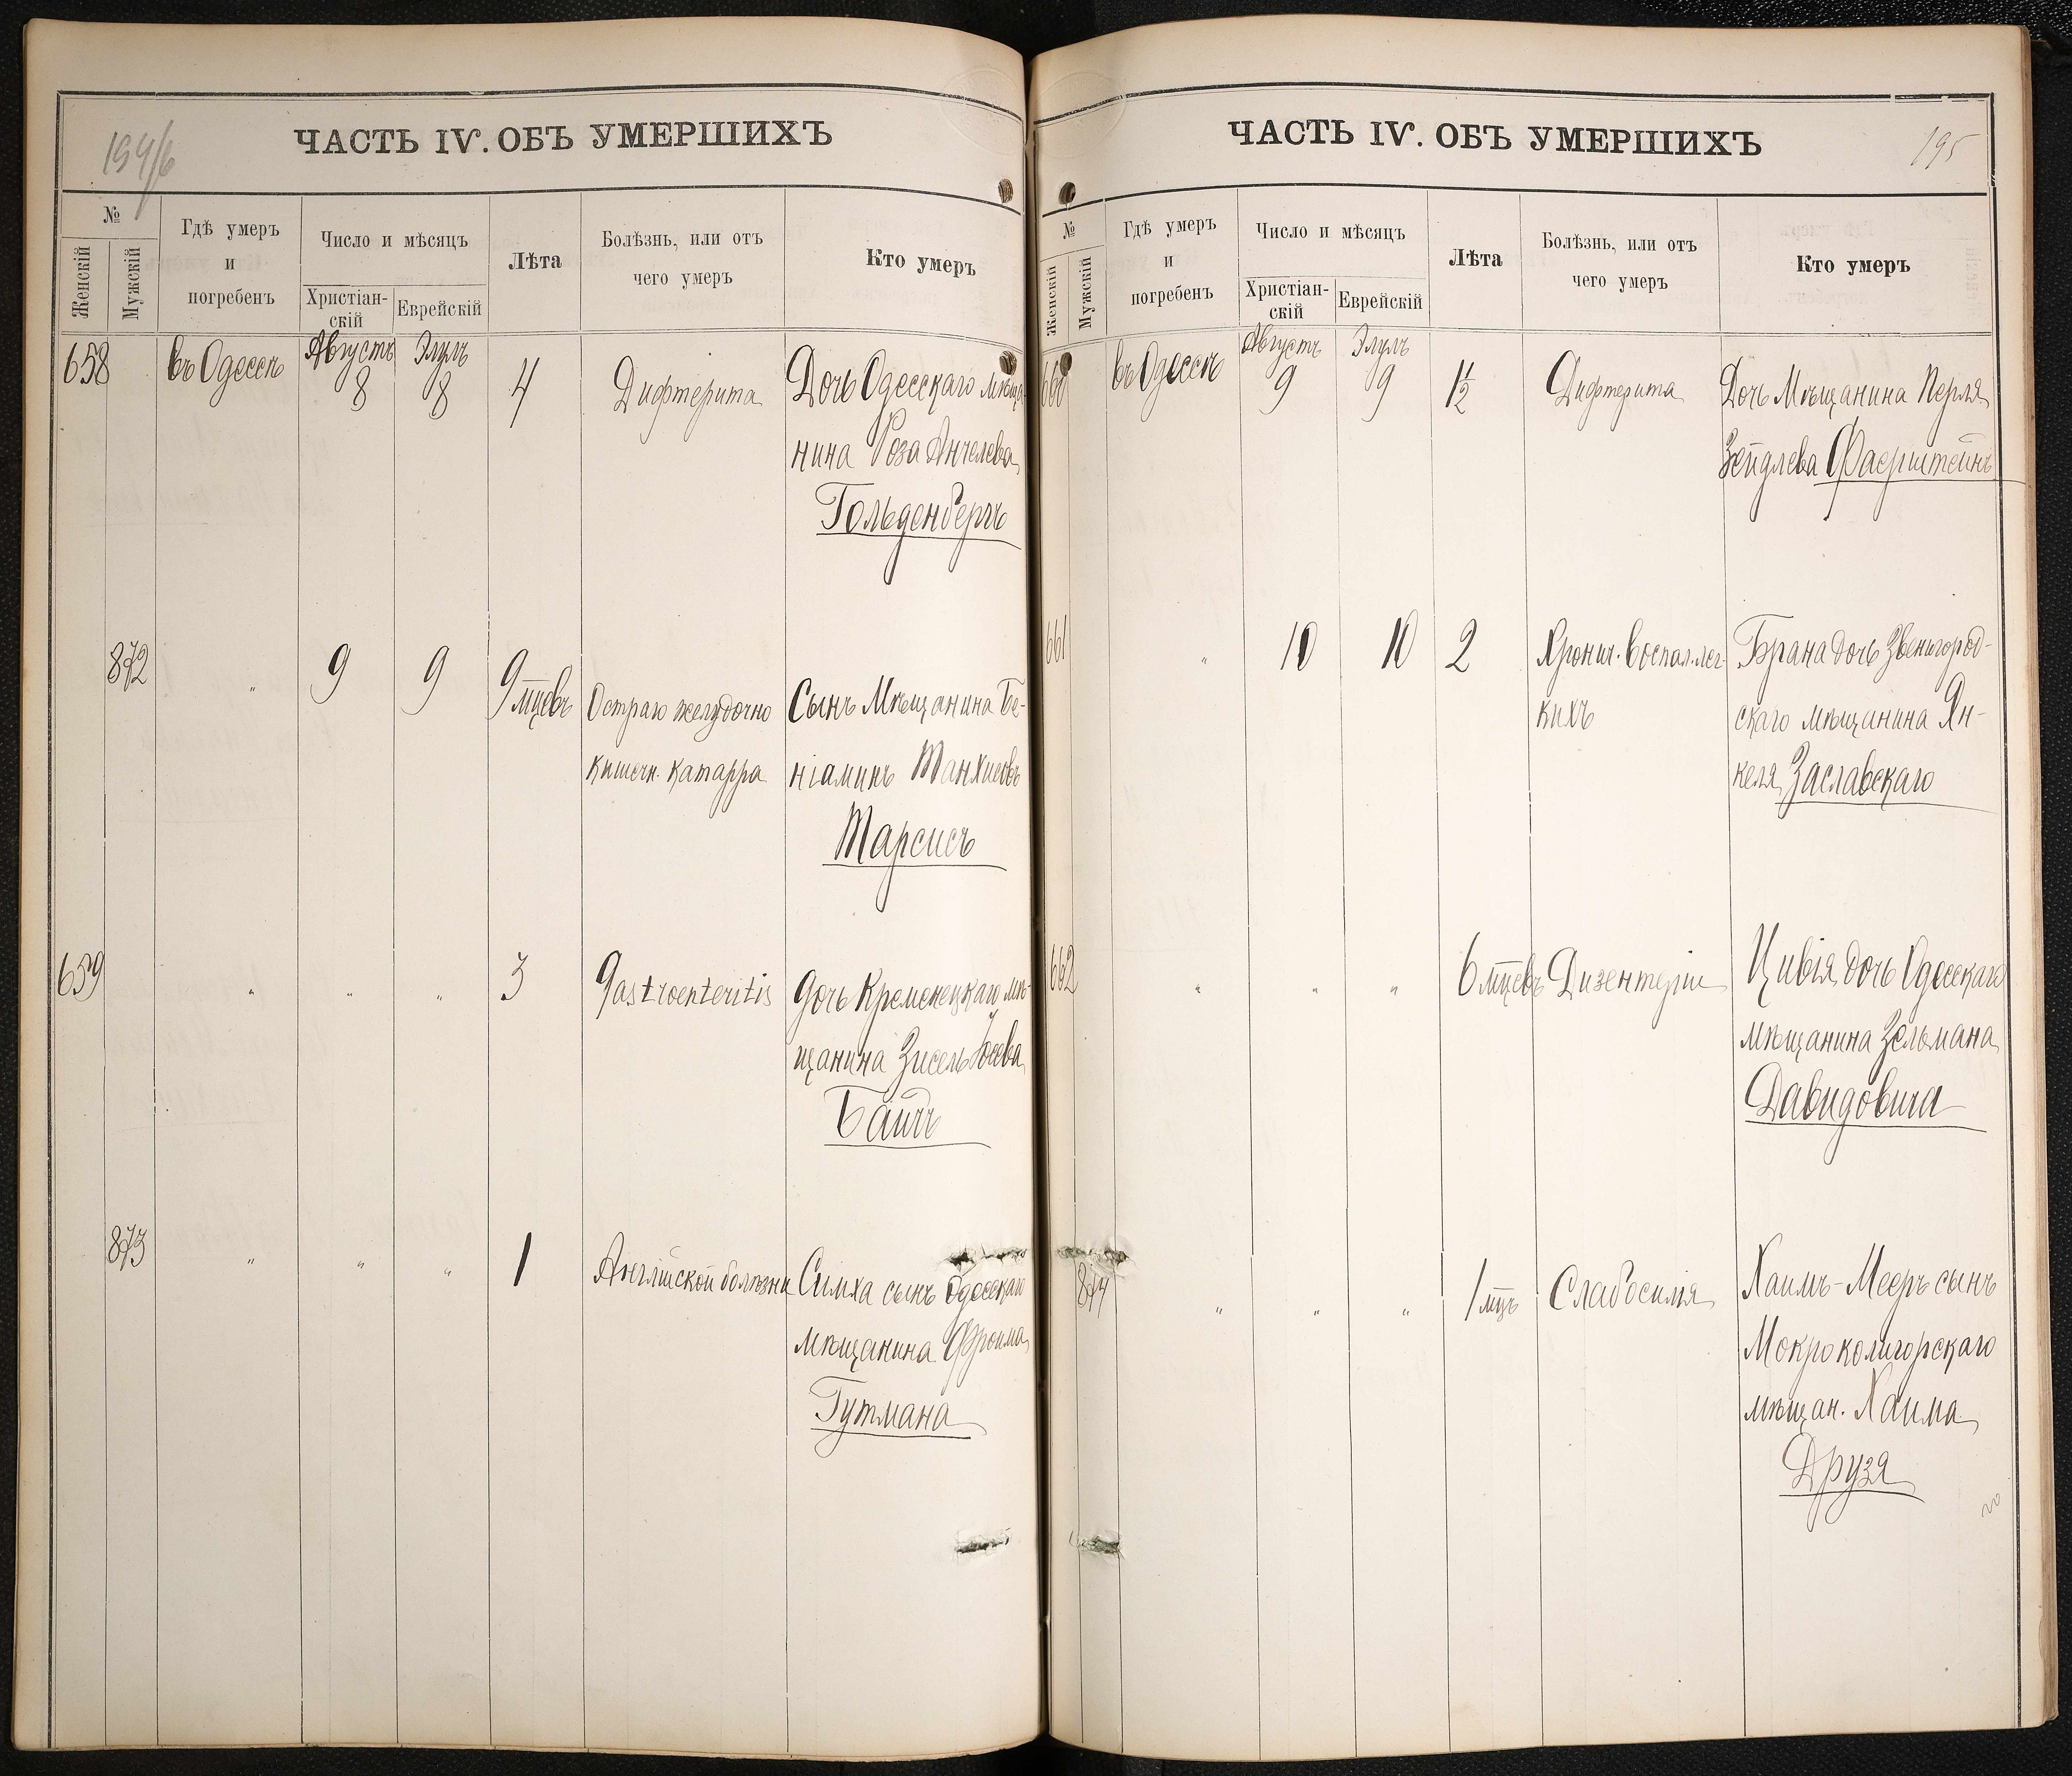 194/б
ЧАСТЬ IV. ОБЪ УМЕРШИХЪ
№
Женскій
Мужскій
Гдѣ умеръ
и
погребенъ
Число и мѣсяцъ
Христіан-
скій
Еврейскій
Лѣта
Болѣзнь, или отъ
чего умеръ
Кто умеръ
658 въ Одессѣ Августъ 8 Элулъ 8 4 Дифтерита Дочь Одесскаго мѣща-
нина Роза Анчелева
Гольденбергъ
872 " 9 9 9 мцевъ Остраго желудочно Сынъ Мѣщанина Бе-
кишечн. катарра ніаминъ Танхиевъ
Тарсисъ
659 " " " 3 Gastroenteritis Дочь Кременецкаго мѣ-
щанина Зисель
873 " " " 1 Англійской болѣзни Симха сынъ Одесскаго
мѣщанина Фроима
Гутмана
195
ЧАСТЬ IV. ОБЪ УМЕРШИХЪ
№
Женскій
Мужскій
Гдѣ умеръ
и
погребенъ
Число и мѣсяцъ
Христіан-
скій
Еврейскій
Лѣта
Болѣзнь, или отъ
чего умеръ
Кто умеръ
660 въ Одессѣ Августъ 9 Элулъ 9 1½ Дифтерита Дочь Мѣщанина Перля
Зейдлева Фаерштейнъ
661 " 10 10 2 Хронич. воспал. лег- Брана дочь Звенигород-
кихъ скаго мѣщанина Ян-
келя Заславскаго
662 " " " 6 мцевъ Дизентеріи Цивія дочь Одесскаго
мѣщанина Зельмана
Давидовича
874 " " " 1 мцъ Слабосилія Хаимъ-Мееръ сынъ
Мокрокалигорскаго
мѣщан. Хаима
Друзя